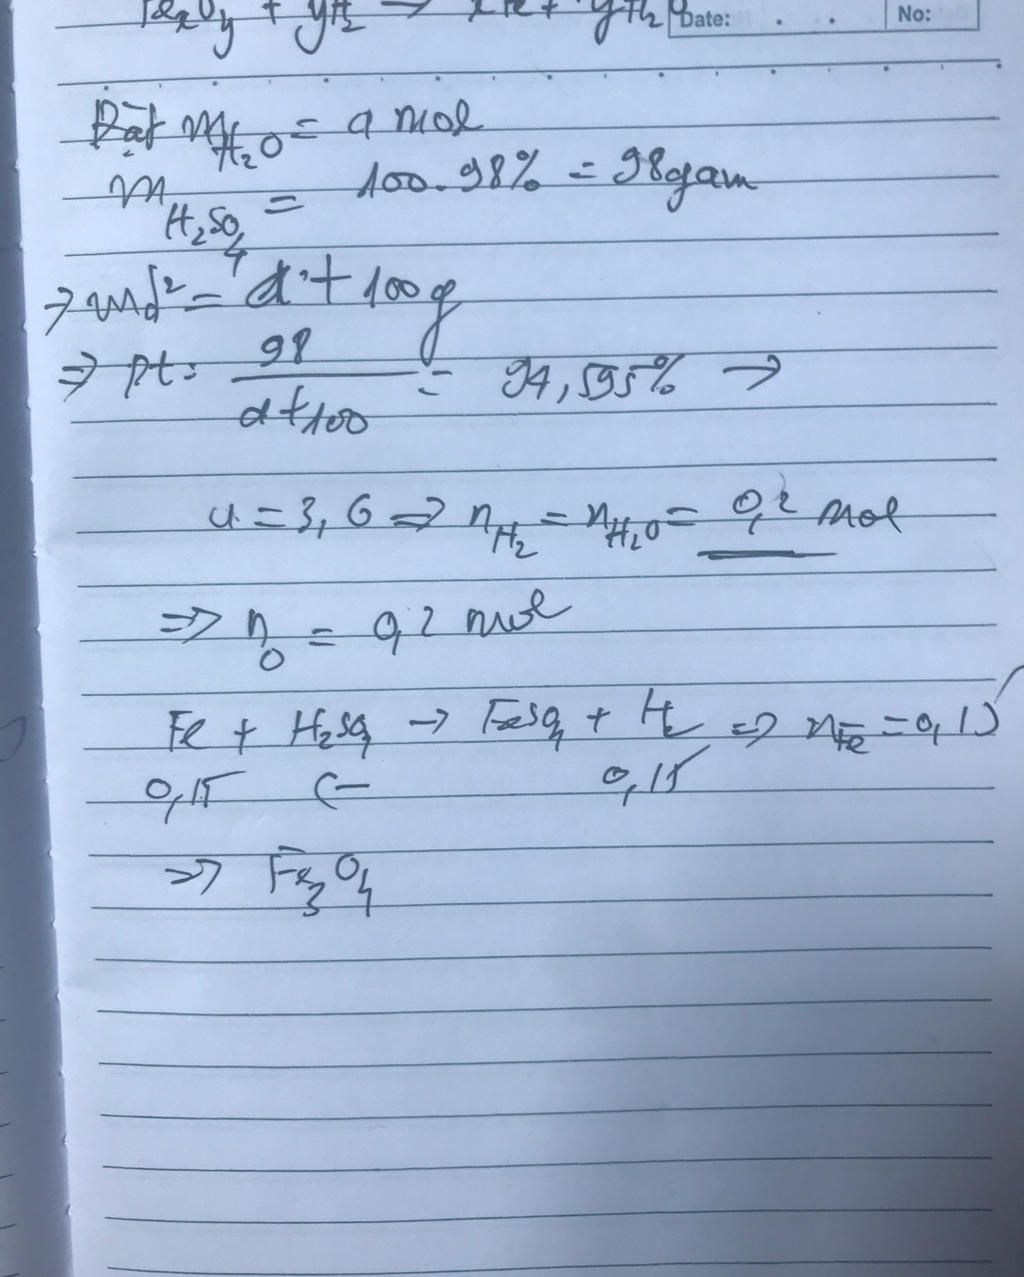 FexOy + yH2 → xFe + yH2O
Date: . . No:
Đặt mH2O = a mol
mH2SO4 = 100.98% = 98gam
→ md² = a + 100g
=> pt: 98/(a+100) = 94,595% →
a = 3,6 => nH2 = nH2O = 0,2 mol
=> nO = 0,2 mol
Fe + H2SO4 → FeSO4 + H2 => nFe = 0,15
0,15 ← 0,15
=> Fe3O4